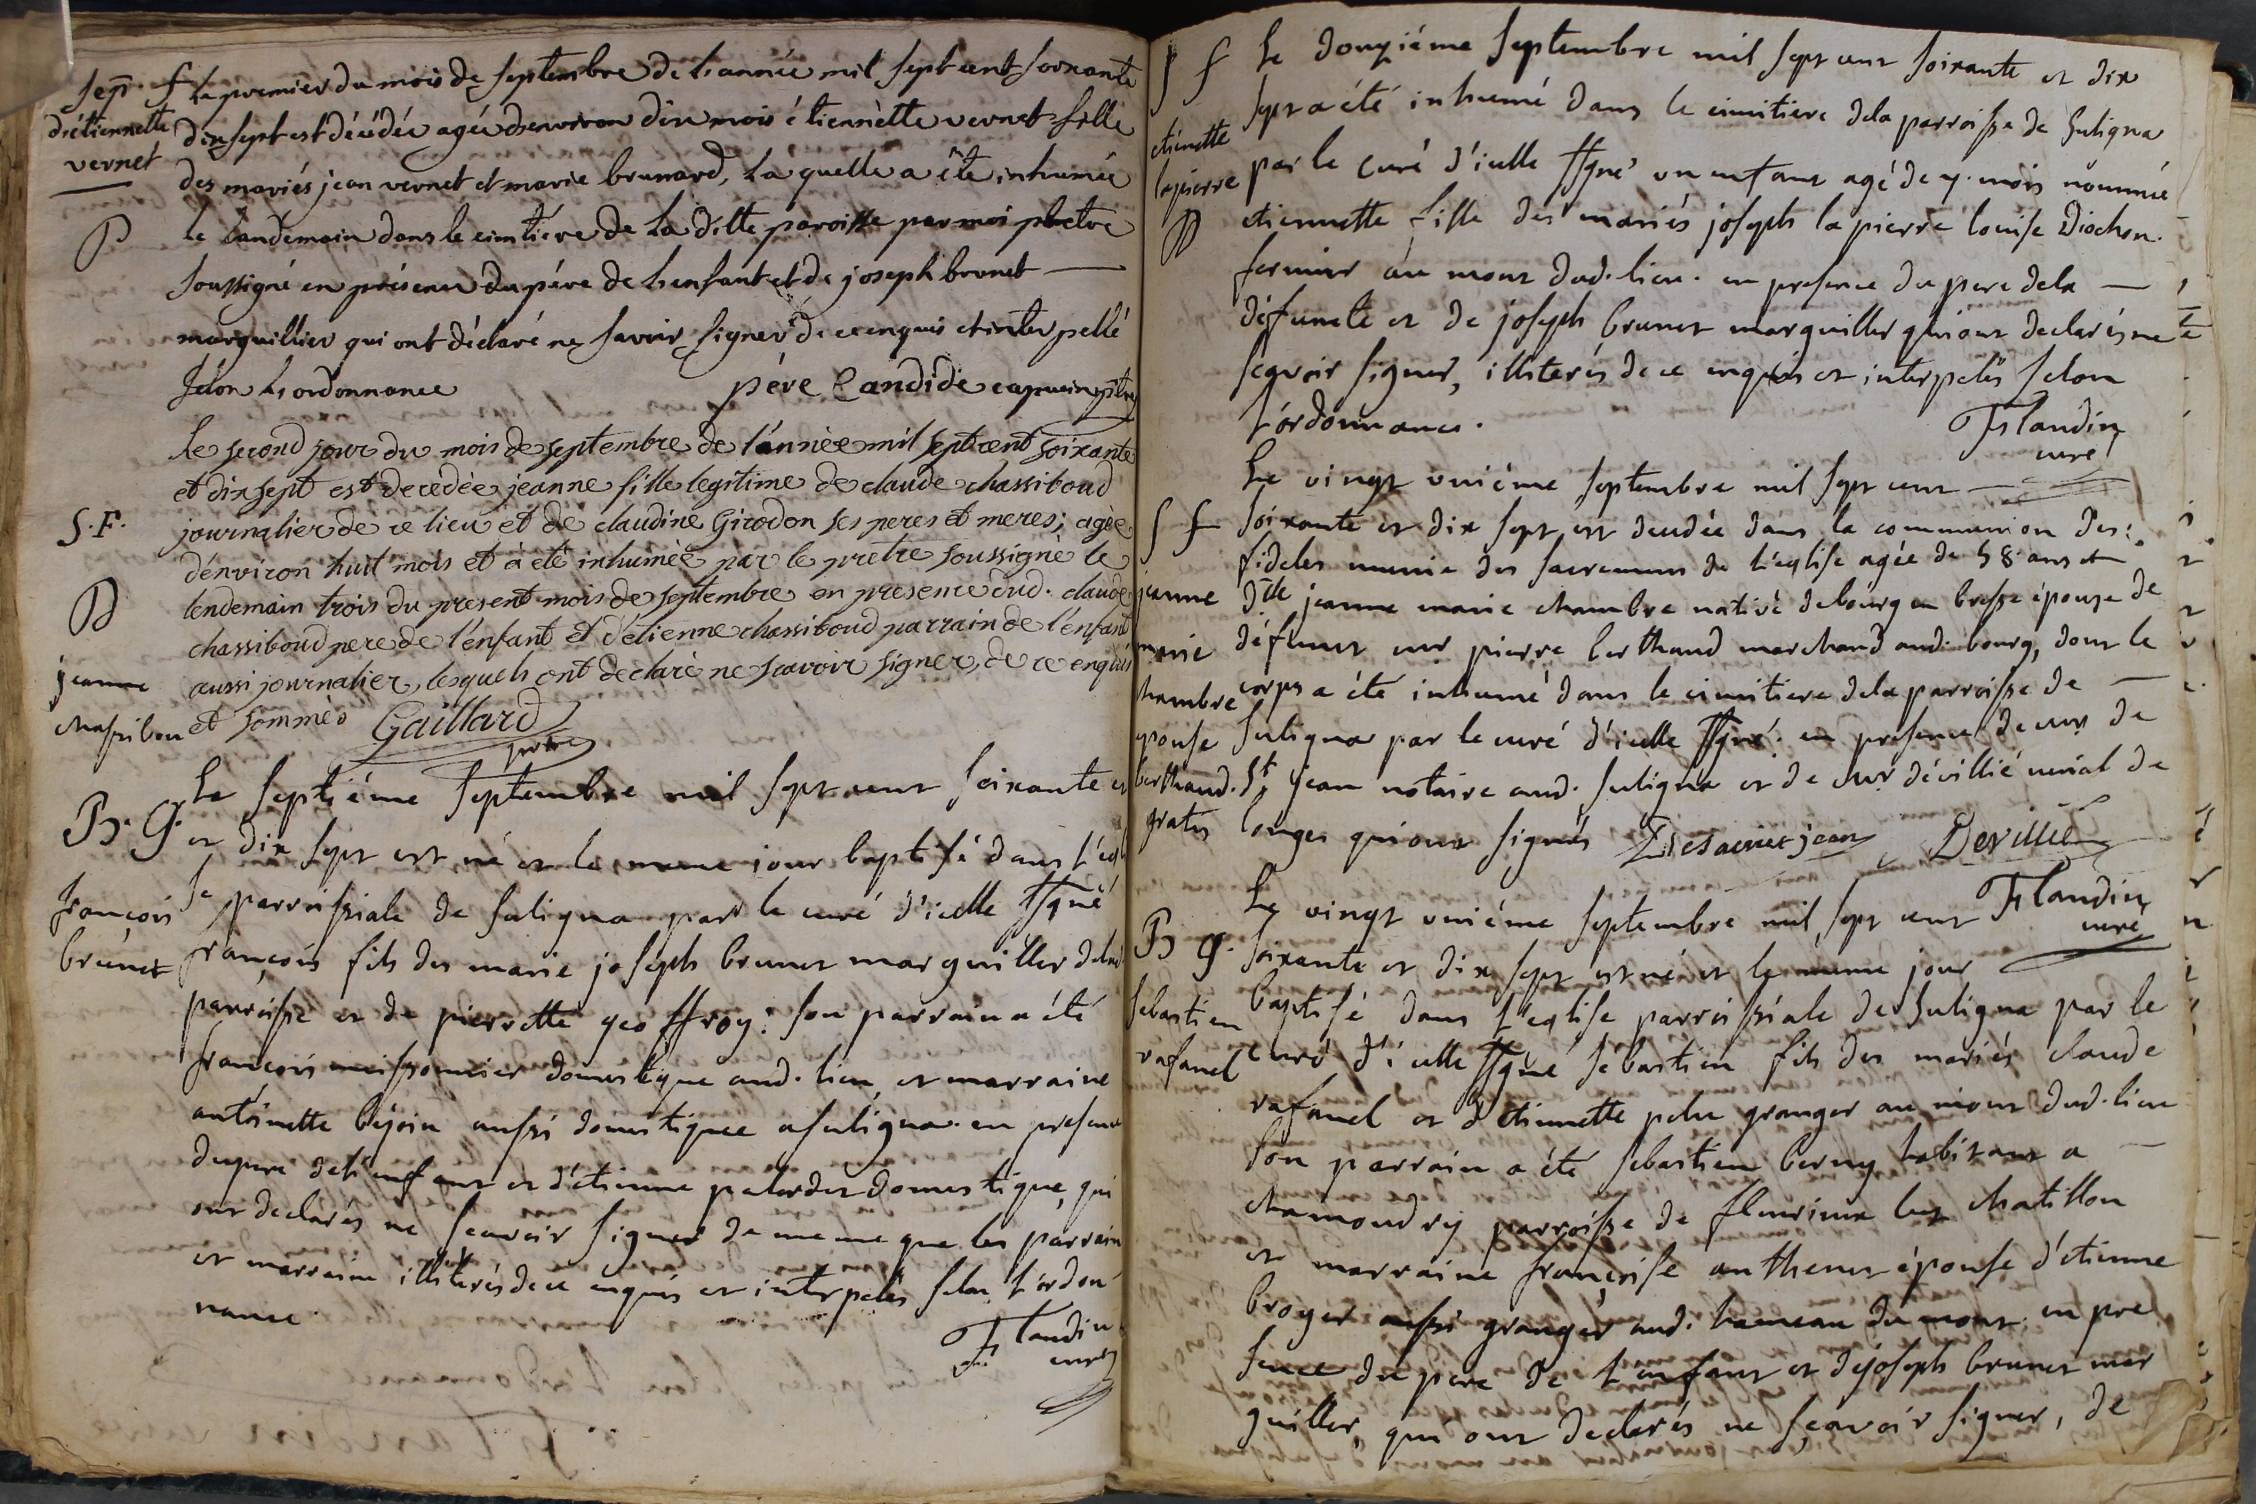 Sep. f.
d'étiennette
vernet
Le premier du mois de septembre de l'année mil sept cent soixante
dixsept est décédée agée d'environ dix mois étiennètte vernet fille
des mariés jean vernet et marie brunard, la quelle a été inhumée
le landemain dans le cimtiére de la ditte paroisse par moi pbetre
soussigné en présence du pére de l'enfant et de joseph brunet
marguillier qui ont déclaré ne savoir signer de ce enquis et interpellé
selon l'ordonnance père Candide capucin
S. F.
jeanne
chassibou
le second jour du mois de septembre de l'année mil sept cent soixante
et dixsept est decedèe jeanne fille legitime de claude chassiboud
journalier de ce lieu et de claudine Girodon ses peres et meres; agèe
d'environ huit mois et à eté inhumèe par le prètre soussignè le
lendemain trois du present mois de septembre en presence dud. claude
chassiboud pere de l'enfant et d'etienne chassiboud parrain de l'enfant
aussi journalier, lesquels ont declarè ne scavoir signer, de ce enquis
et sommès Gaillard
pretre
B. G.
françois
brunet
Le septiéme septembre mil sept cent soixante et
et dix sept est né et le meme jour baptisé dans l'egli
se parroissiale de suligna par le curé d'icelle ssgné
françois fils des marie joseph brunet marguiller dela
parroisse et de pierrette geoffroy: son parrain a été
françois meissonnier domestique aud. lieu et marraine
antoinette bejoin aussi domestique a suligna. en presence
du pere de l'enffant et d'étienne palordet domestique, qui
ont declarés ne scavoir signer de meme que les parrain
et marraine illiterés de ce enquis et interpelés selon l'ordon
nance.
Flandin
curé
S f
etienette
lapierre
Le douziéme septembre mil sept cent soixante et dix
sept a été inhumé dans le cimitiere dela parroisse de suligna
par le curé d'icelle ssgné un enfant agé de mois nommée
etiennette fille des mariés joseph la pierre louise Diochon
fermier au mont dud. lieu. en presence du pere dela
défuncte et de joseph brunet marguiller qui ont declarés ne
sçavoir signer, illiterés de ce enquis et interpelés selon
l'ordonnance.
Flandin
curé
S f
jeanne
marie
chambre
epouse
berthaud.
gratis
Le vingt uniéme septembre mil sept cent
soixante et dix sept est decedée dans la communion des
fideles munie des sacremens de l'eglise agée de 58 ans
dlle jeanne marie chambre native de bourg en bresse épouse de
défunct mr pierre berthaud marchand aud. bourg, dont le
corps a été inhumé dans le cimitiere dela parroisse de
suligna par le curé d'icelle ssgné. en presence de mr de
St jean notaire aud. suligna et de mr dévillié de
longes qui ont signés Desaint jean, Devillié
Flandin
curé
B g.
sebastien
rafanel
Le vingt uniéme septembre mil sept cent
soixante et dix sept est né et le meme jour
baptisé dans l'eglise parroissiale de suligna par le
curé d'icelle ssgné sébastien fils des mariés claude
rafanel et d'etiennette pelu granger au mont dud. lieu
son parrain a été sebastien berny habitant a
chamoudry parroisse de fleurieux les chatillon
et marraine françoise anthenet épouse d'etienne
broyer aussi granger aud. hameau du mont. en pre
sence du pere de l'enfant et de joseph brunet mar
guiller, qui ont declarés ne sçavoir signer, de